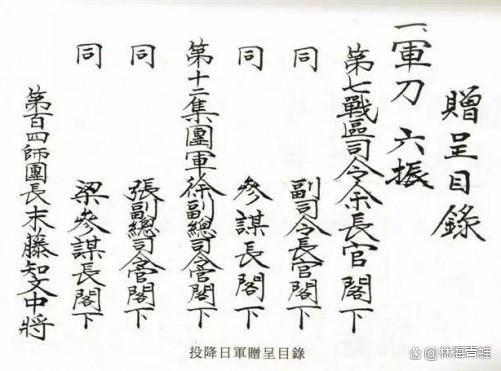 贈呈目錄
一、軍刀 六振
第七戰區司令余長官閣下
同 副司令長官閣下
同 參謀長閣下
第十二集團軍徐副總司令官閣下
同 張副總司令官閣下
同 梁參謀長閣下
第百四師團長末藤知文中將
投降日軍贈呈目錄
@林海青蛙